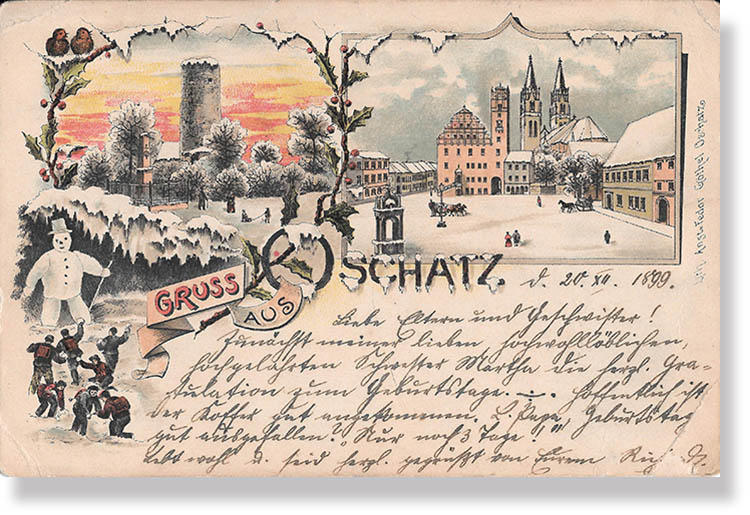 GRUSS
AUS
OSCHATZ.
d. 20. XII. 1899.
Liebe Eltern und Geschwister!
Zunächst meiner lieben, hochwohllöblichen,
hochgelahrten Schwester Martha die herzl. Gra-
tulation zum Geburtstage. Hoffentlich ist
der Koffer gut angekommen. Geburtstag
gut ausgefallen? "Nur noch 3 Tage!"
Lebt wohl u. seid herzl. gegrüßt von Eurem
Oschatz